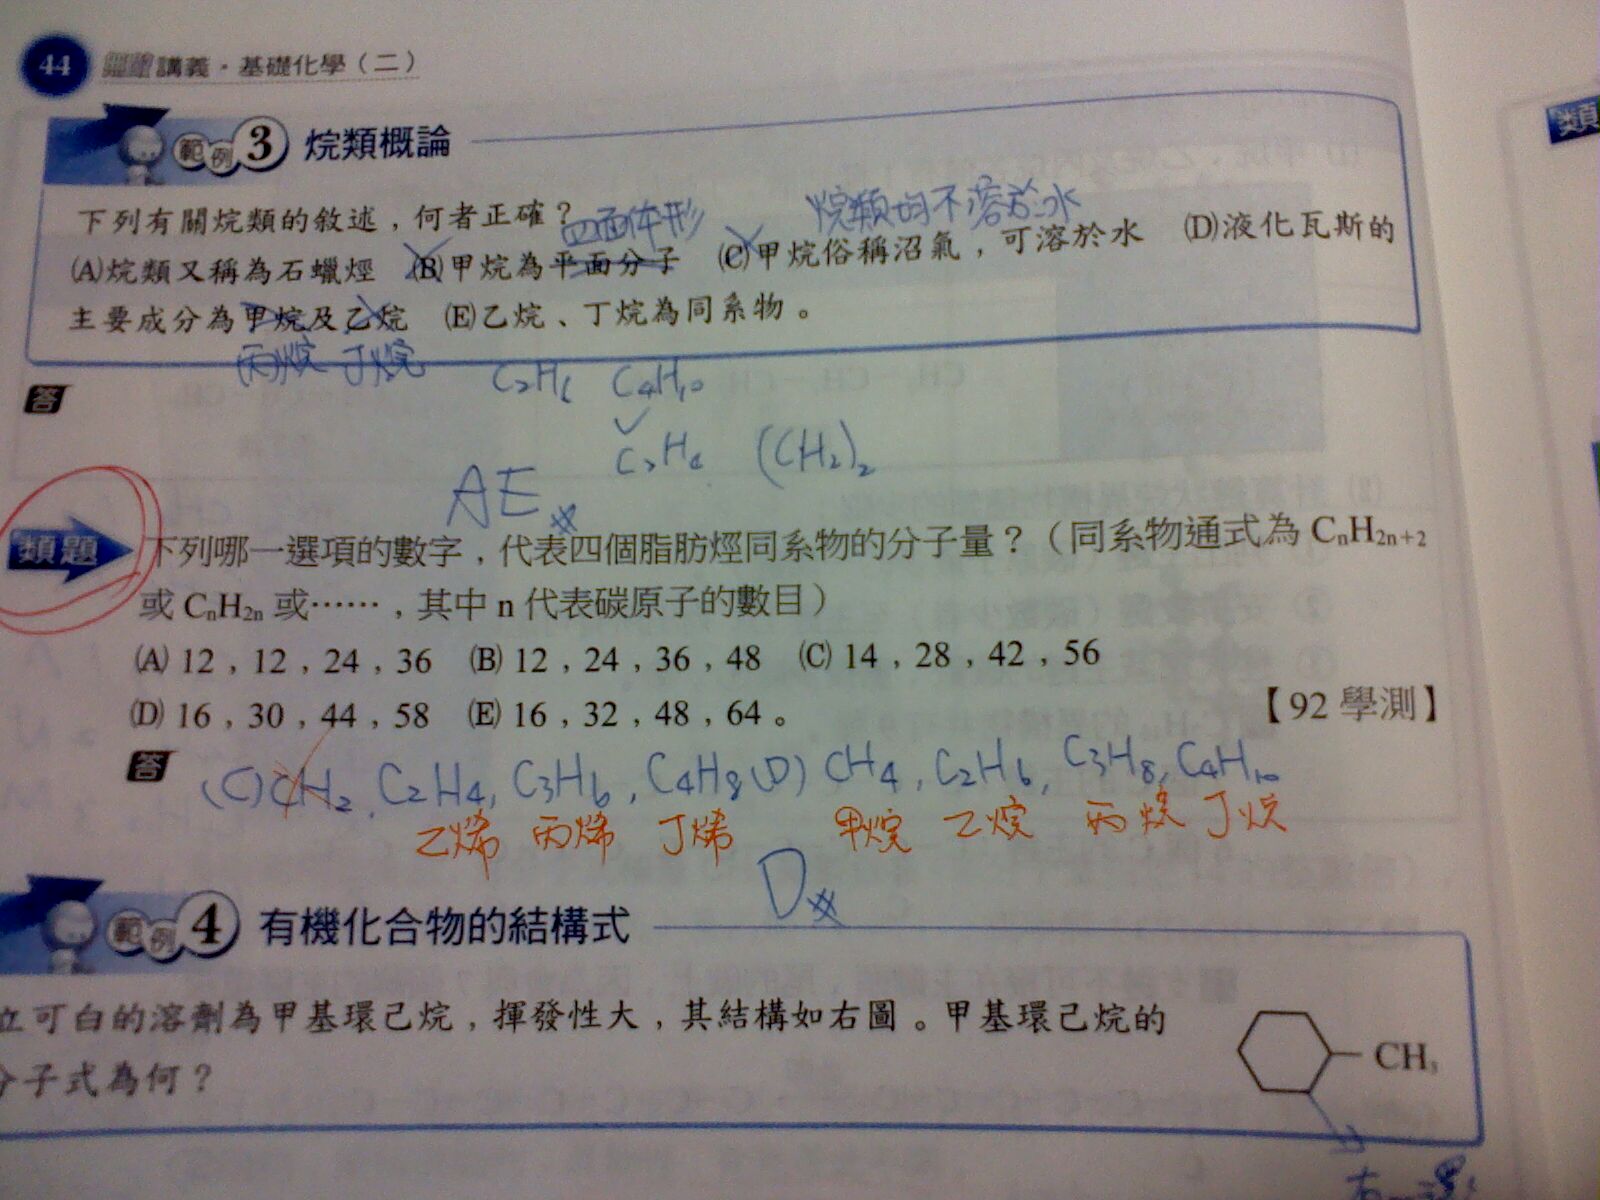 44 講義・基礎化學（二）
範例 3 烷類概論
下列有關烷類的敘述，何者正確？
四面体形
烷類均不溶於水
(A)烷類又稱為石蠟烴 (B)甲烷為平面分子 (C)甲烷俗稱沼氣，可溶於水 (D)液化瓦斯的
主要成分為甲烷及乙烷 (E)乙烷、丁烷為同系物。
丙烷 丁烷
C2H6 C4H10
答
(CH2)2
AE
類題 下列哪一選項的數字，代表四個脂肪烴同系物的分子量？（同系物通式為 CnH2n+2
或 CnH2n 或……，其中 n 代表碳原子的數目）
(A) 12，12，24，36 (B) 12，24，36，48 (C) 14，28，42，56
(D) 16，30，44，58 (E) 16，32，48，64。 【92 學測】
答 (C) CH2, C2H4, C3H6, C4H8 (D) CH4, C2H6, C3H8, C4H10
乙烯 丙烯 丁烯 甲烷 乙烷 丙烷 丁烷
D
範例 4 有機化合物的結構式
立可白的溶劑為甲基環己烷，揮發性大，其結構如右圖。甲基環己烷的
分子式為何？
CH3